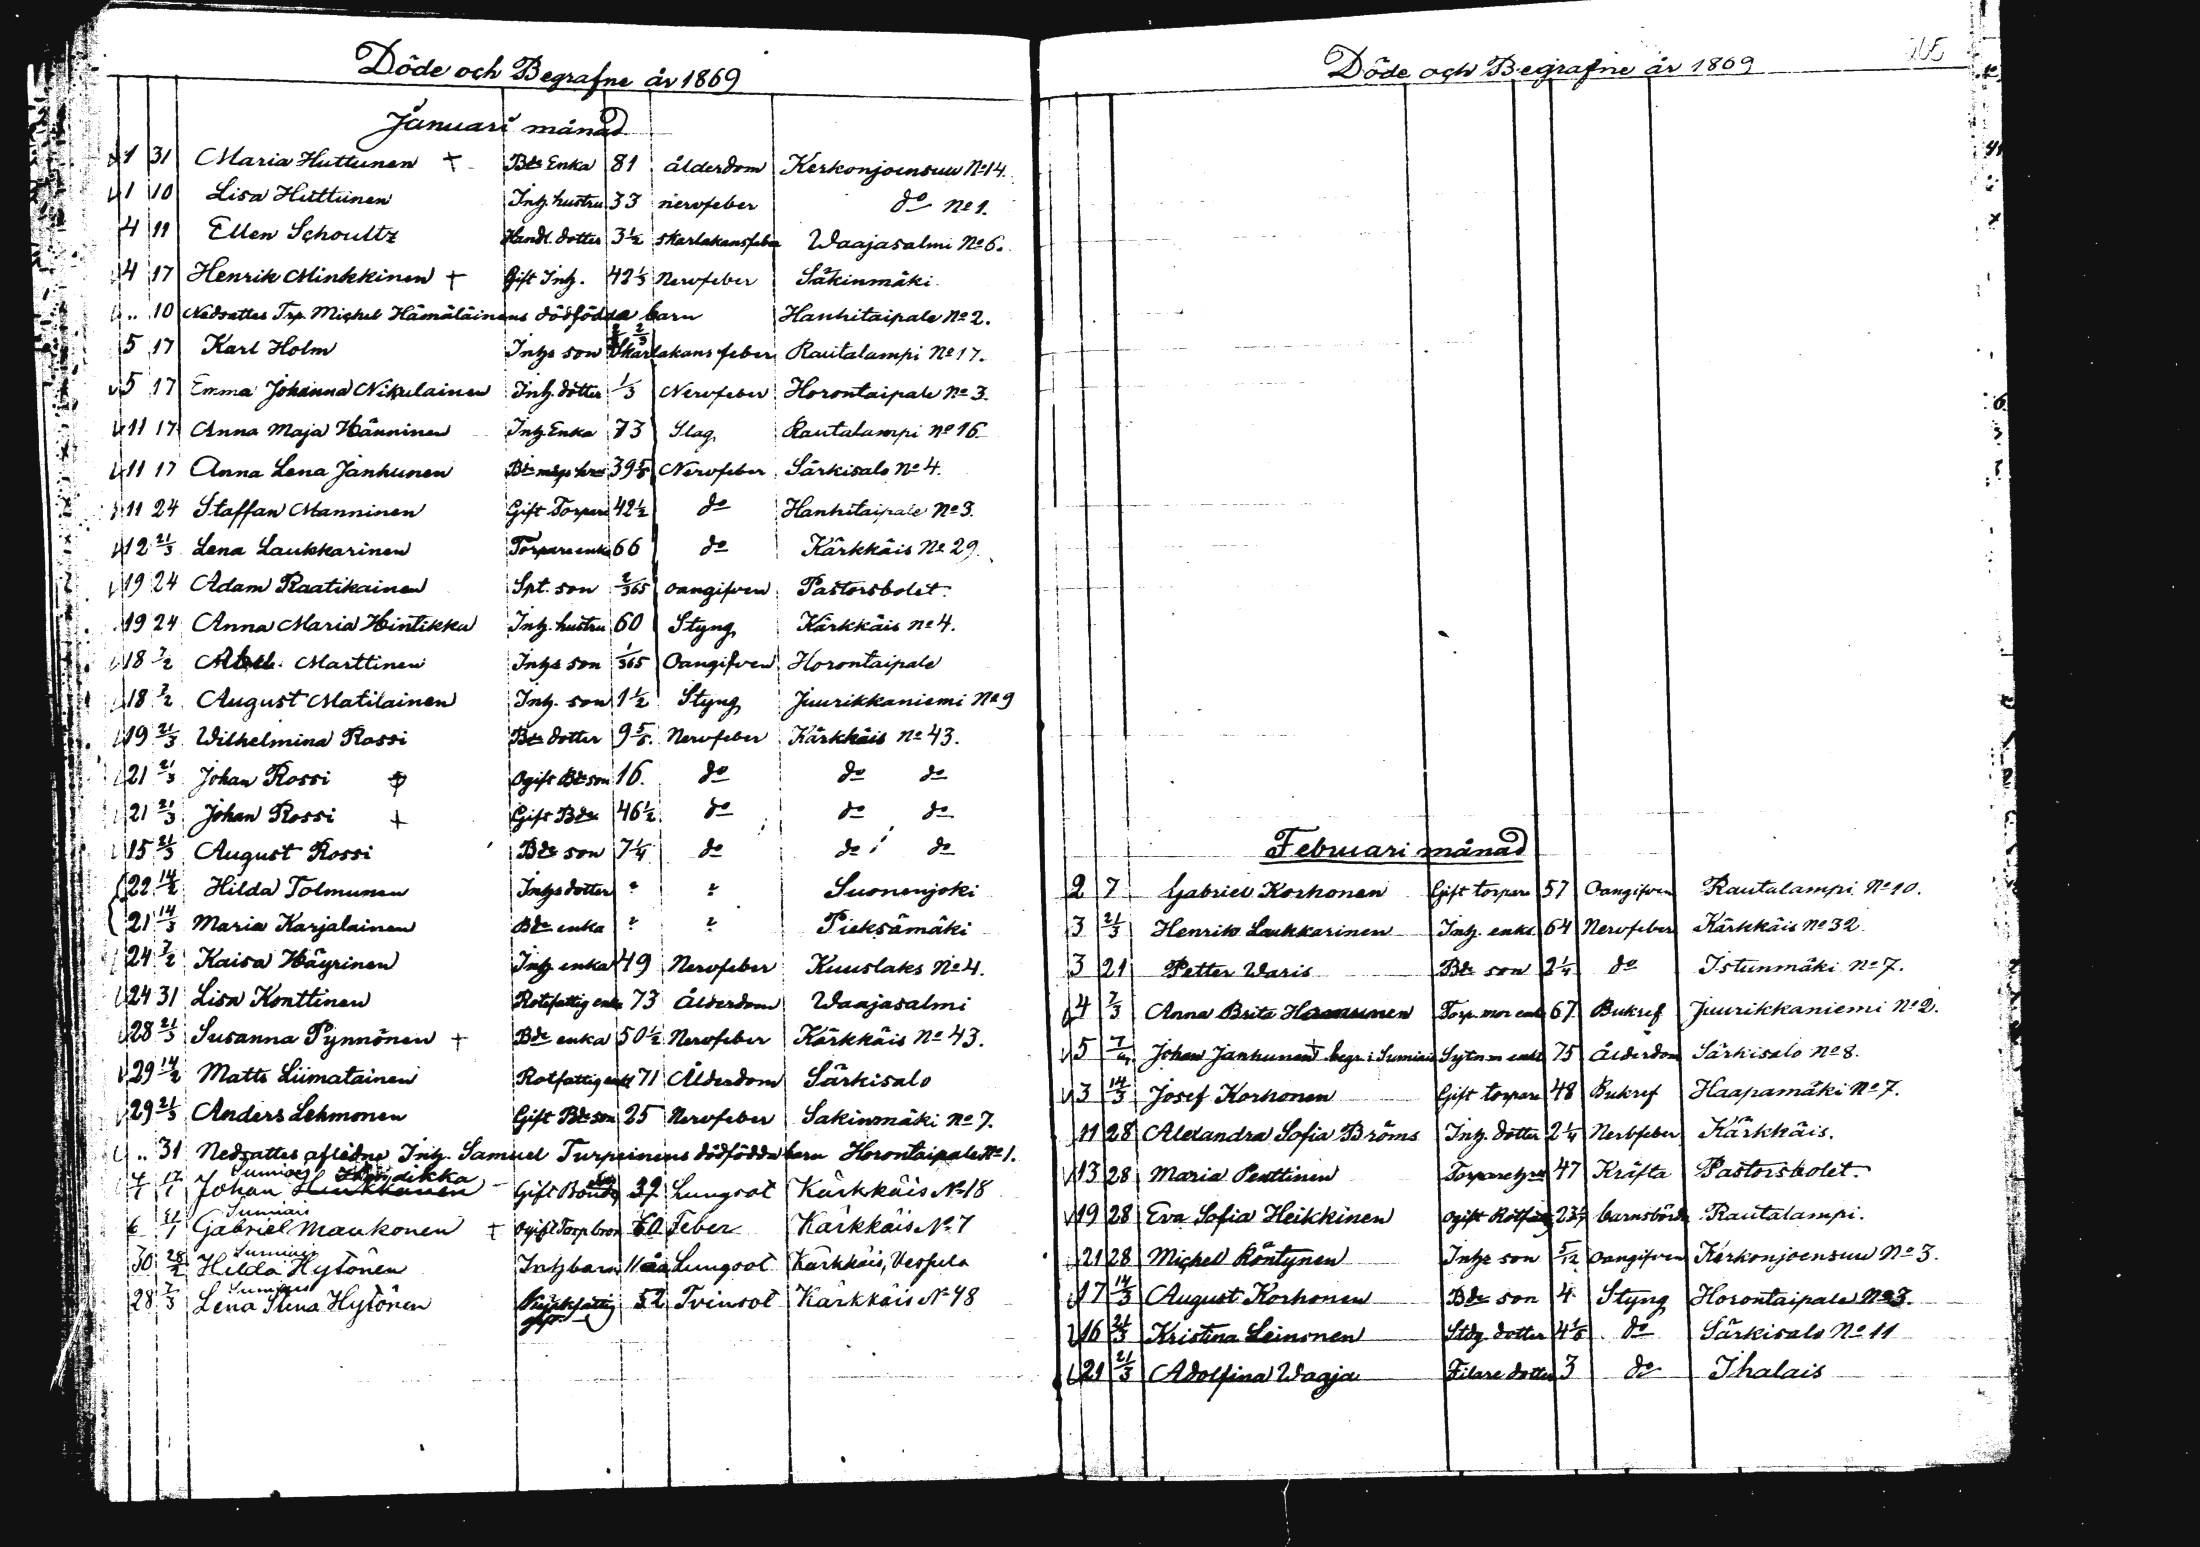 Döde och Begrafne år 1869
Januari månad
1 31 Maria Huttunen + Bde Enka 81 ålderdom Kerkonjoensuu No 14.
1 10 Lisa Huttunen Inh. hustru 33 nervfeber do No 1.
4 11 Ellen Schoultz Handl. dotter 3 1/2 skarlakansfeber Waajasalmi No 6.
4 17 Henrik Minkkinen + Gift Inh. 42 1/3 Nervfeber Säkinmäki
.. 10 Nedsattes Trp. Michel Hämäläinens dödfödda barn Hanhitaipale No 2.
5 17 Karl Holm Inhs son Skarlakans feber Rautalampi No 17.
5 17 Emma Johanna Nikulainen Inh. dotter 1/3 Nervfeber Horontaipale No 3.
11 17 Anna Maja Hänninen Inh Enka 73 Slag Rautalampi No 16
11 17 Anna Lena Janhunen Bde mågs hru 39 5/6 Nervfeber Särkisalo No 4.
11 24 Staffan Manninen Gift Torpare 42 1/2 do Hanhitaipale No 3.
12 21/3 Lena Laukkarinen Torpare enka 66 do Kärkkäis No 29.
19 24 Adam Raatikainen Spt. son 2/365 oangifven Pastorsbolet.
19 24 Anna Maria Hintikka Inh. hustru 60 Styng Kärkkäis No 4.
18 7/2 Marttinen Inhs son 1/365 Oangifven Horontaipale
18 7/2 August Matilainen Inh. son 1 1/2 Styng Juurikkaniemi No 9
19 21/3 Wilhelmina Rossi Bde dotter 9 5/6. Nervfeber Kärkkäis No 43.
21 21/3 Johan Rossi + Ogift Bde son 16. do do do
21 21/3 Johan Rossi + Gift Bde 46 1/2 do do do
15 21/3 August Rossi Bde son 7 1/4 do do do
22 14/2 Hilda Tolmunen Inhs dotter ? ? Suonenjoki
21 14/3 Maria Karjalainen Bde enka ? ? Pieksämäki
24 7/2 Kaisa Häyrinen Inh enka 49 Nervfeber Kuuslaks No 4.
24 31 Lisa Konttinen Rotfattig enka 73 Ålderdom Waajasalmi
28 21/3 Susanna Pynnönen + Bde enka 50 1/2 Nervfeber Kärkkäis No 43.
29 14/2 Matts Liimatainen Rotfattig enkl 71 Ålderdom Särkisalo
29 21/3 Anders Lehmonen Gift Bde son 25 Nervfeber Sakinmäki No 7.
.. 31 Nedsattes aflidne Inh. Samuel Turpeinens dödfödda barn Horontaipale No 1.
Sumiais
Johan Gift Bonde 39 Lungsot Kärkkäis No 18
Sumiais
6 Gabriel Maukonen + Ogift Torp. bror 60 Feber Kärkkäis No 7
Sumiais
30 28/2 Hilda Hytönen Inhbarn 11 Lungsot Kärkkäis, Vesfula
Sumiais
28 7/3 Lena Stina Hytönen 52 Tvinsot Kärkkäis No 48
Döde och Begrafne år 1869
Februari månad
2 7 Gabriel Korhonen Gift torpare 57 Oangifven Rautalampi No 10.
3 21/3 Henrik Laukkarinen Inh. enkl. 64 Nervfeber Kärkkäis No 32
3 21 Petter Waris Bde son 2 1/4 do Istunmäki No 7.
4 7/3 Anna Brita Torp. mor enka 67 Bukref Juurikkaniemi No 2.
5 Johan Janhunen + begr. i Sumiais Sytn.m enkl 75 Ålderdom Särkisalo No 8.
3 14/3 Josef Korhonen Gift torpare 48 Bukref Haapamäki No 7.
11 28 Alexandra Sofia Bröms Inh. dotter 2 1/4 Nervfeber Kärkkäis.
13 28 Maria Penttinen Torpare hru 47 Kräfta Pastorsbolet.
19 28 Eva Sofia Heikkinen Ogift Rotfattig barnsbörd Rautalampi.
21 28 Michel Röntynen Inhs son 5/12 Oangifven Kerkonjoensuu No 3.
17 14/3 August Korhonen Bde son 4 Styng Horontaipale No 3.
16 21/3 Kristina Leinonen Stdg. dotter 4 1/6 do Särkisalo No 11
21 21/3 Adolfina Waaja Filare dotter 3 do Ihalais